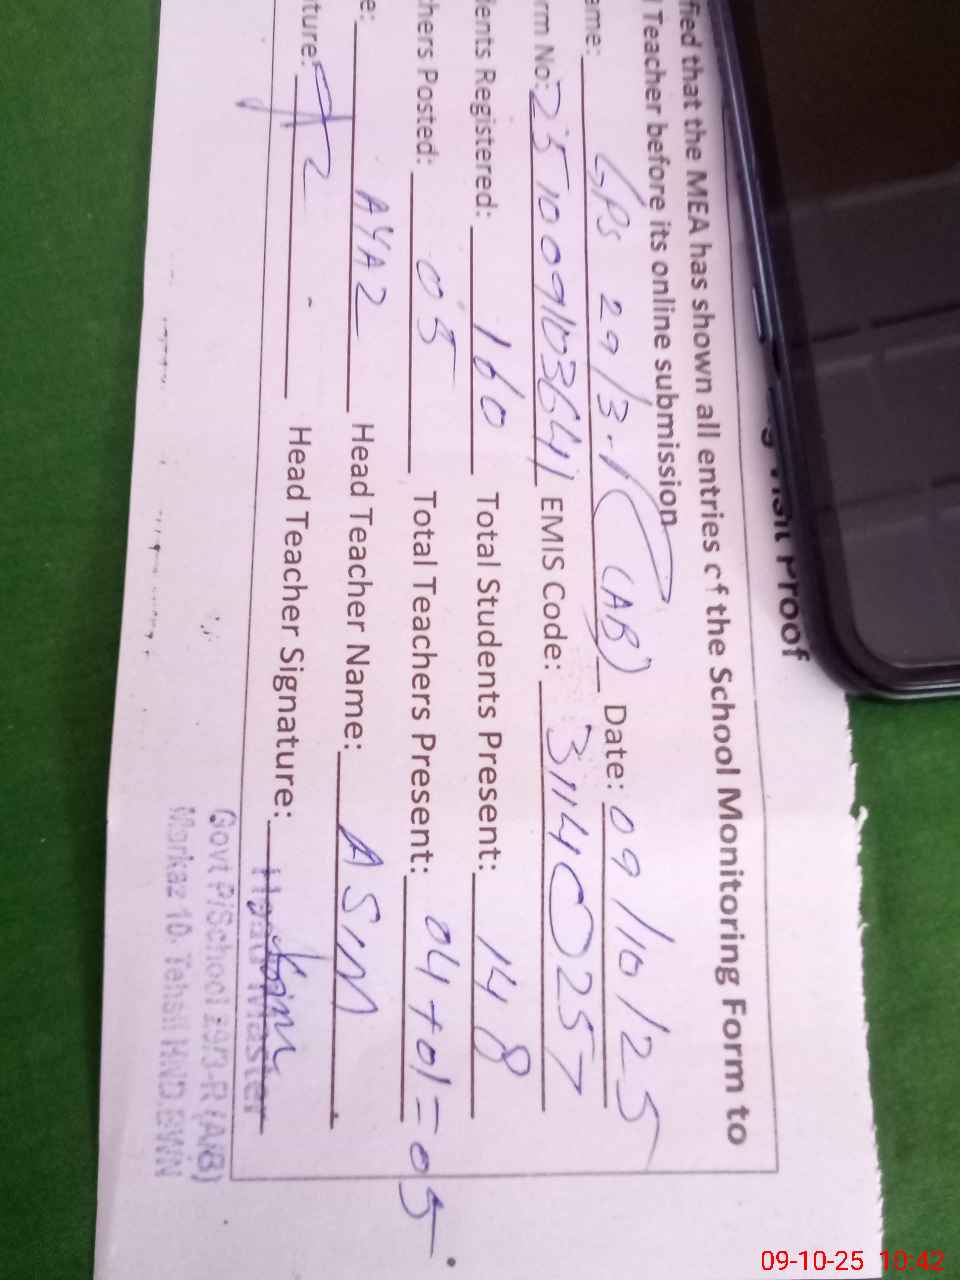 g Visit Proof
fied that the MEA has shown all entries of the School Monitoring Form to
Teacher before its online submission
ame: GPS 29/3-R (AB) Date: 09/10/25
rm No: 251009103641 EMIS Code: 31140257
ents Registered: 160 Total Students Present: 148
hers Posted: 05 Total Teachers Present: 04+01=05
e: AYAZ Head Teacher Name: ASIM
ture: Head Teacher Signature: Asim
Head Master
Govt P/School 29/3-R (A/B)
Markaz 10. Tehsil HND.BWN
09-10-25 10:42